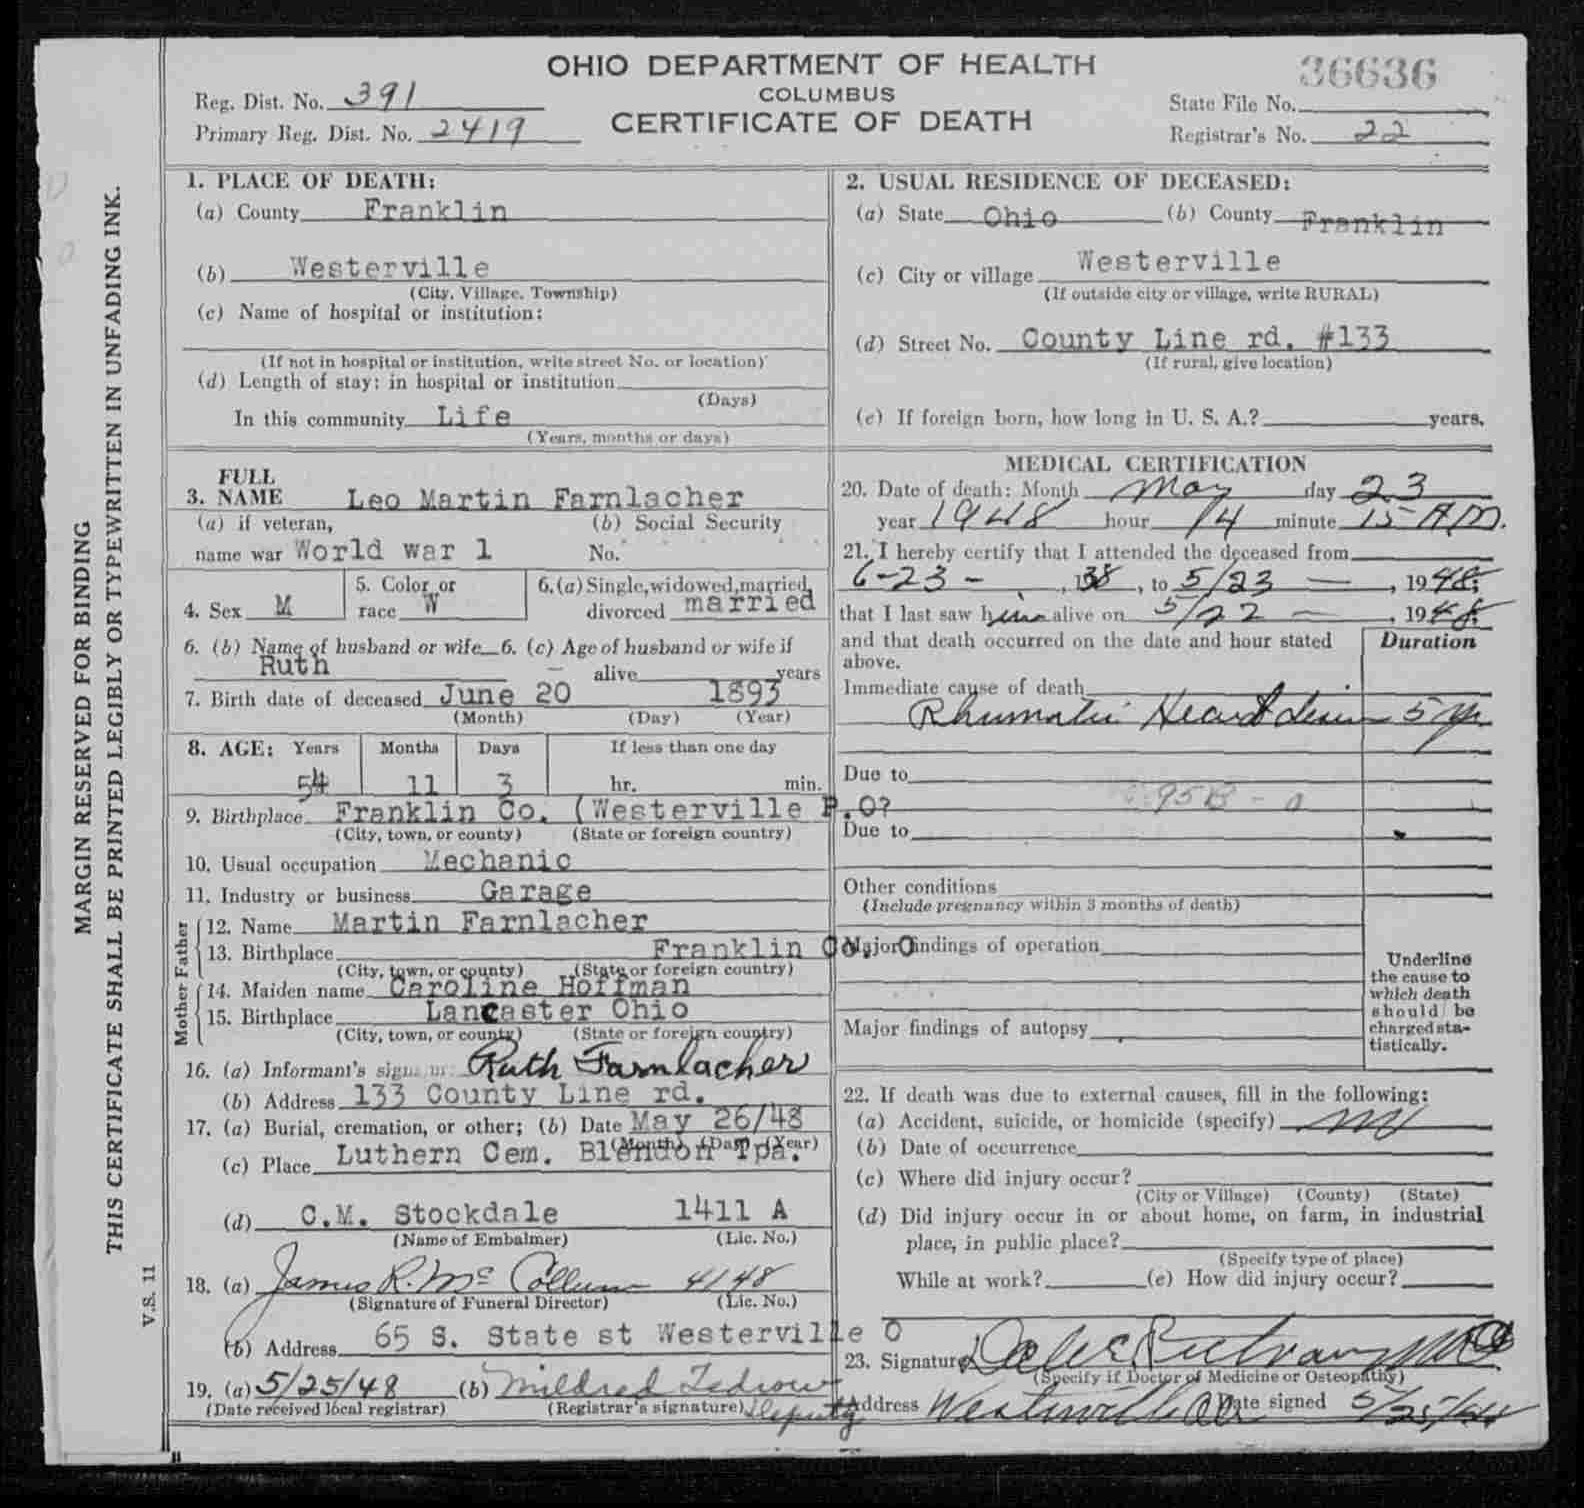 OHIO DEPARTMENT OF HEALTH
COLUMBUS
CERTIFICATE OF DEATH
36636
Reg. Dist. No. 391
Primary Reg. Dist. No. 2419
State File No.
Registrar's No. 22
MARGIN RESERVED FOR BINDING
THIS CERTIFICATE SHALL BE PRINTED LEGIBLY OR TYPEWRITTEN IN UNFADING INK.
V.S. 11
1. PLACE OF DEATH:
(a) County Franklin
(b) Westerville
(City, Village, Township)
(c) Name of hospital or institution:
(If not in hospital or institution, write street No. or location)
(d) Length of stay: in hospital or institution
(Days)
In this community Life
(Years, months or days)
2. USUAL RESIDENCE OF DECEASED:
(a) State Ohio (b) County Franklin
(c) City or village Westerville
(If outside city or village, write RURAL)
(d) Street No. County Line rd. #133
(If rural, give location)
(e) If foreign born, how long in U. S. A.? years.
3. FULL NAME Leo Martin Farnlacher
(a) if veteran, (b) Social Security
name war World war 1 No.
4. Sex M
5. Color or race W
6. (a) Single, widowed, married, divorced married
6. (b) Name of husband or wife 6. (c) Age of husband or wife if
Ruth alive years
7. Birth date of deceased June 20 1893
(Month) (Day) (Year)
8. AGE: Years Months Days If less than one day
54 11 3 hr. min.
9. Birthplace Franklin Co. (Westerville P.O?
(City, town, or county) (State or foreign country)
10. Usual occupation Mechanic
11. Industry or business Garage
Father
12. Name Martin Farnlacher
13. Birthplace Franklin Co. O
(City, town, or county) (State or foreign country)
Mother
14. Maiden name Caroline Hoffman
15. Birthplace Lancaster Ohio
(City, town, or county) (State or foreign country)
16. (a) Informant's signature Ruth Farnlacher
(b) Address 133 County Line rd.
17. (a) Burial, cremation, or other; (b) Date May 26/48
(Month) (Day) (Year)
(c) Place Luthern Cem. Blendon Tps.
(d) C.M. Stockdale 1411 A
(Name of Embalmer) (Lic. No.)
18. (a) James R. McCollum 4148
(Signature of Funeral Director) (Lic. No.)
(b) Address 65 S. State st Westerville O
19. (a) 5/25/48 (b) Mildred Tedrow
(Date received local registrar) (Registrar's signature) Deputy
MEDICAL CERTIFICATION
20. Date of death: Month May day 23
year 1948 hour 14 minute 15 A.M.
21. I hereby certify that I attended the deceased from
6-23-, 1938, to 5/23 —, 1948;
that I last saw him alive on 5/22 —, 1948;
and that death occurred on the date and hour stated
above.
Duration
Immediate cause of death
Rhumatic Heart 5 yr
Due to
95B-a
Due to
Other conditions
(Include pregnancy within 3 months of death)
Major findings of operation
Major findings of autopsy
Underline
the cause to
which death
should be
charged sta-
tistically.
22. If death was due to external causes, fill in the following:
(a) Accident, suicide, or homicide (specify)
(b) Date of occurrence
(c) Where did injury occur?
(City or Village) (County) (State)
(d) Did injury occur in or about home, on farm, in industrial
place, in public place?
(Specify type of place)
While at work? (e) How did injury occur?
23. Signature
(Specify if Doctor of Medicine or Osteopathy)
Address Westerville O Date signed 5/25/48